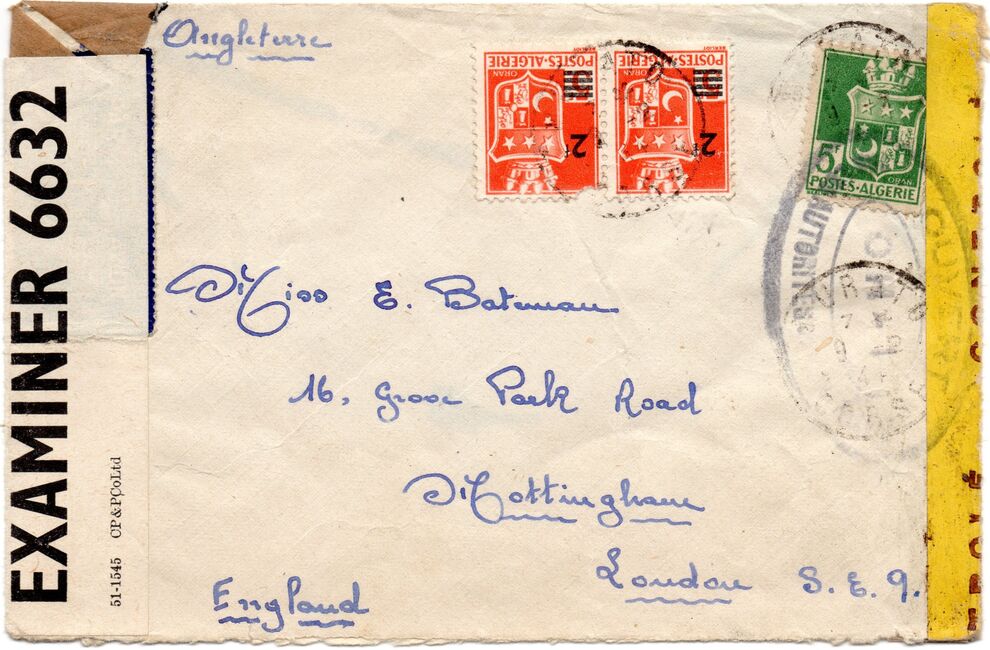 Angleterre
EXAMINER 6632
51-1545 CP&PCoLtd
ORAN
POSTES-ALGERIE
5f
2f
ORAN
POSTES-ALGERIE
5f
2f
5f
ORAN
POSTES-ALGERIE
OUVERT
AUTORITES
CONTROL
Miss E. Bateman
16, Grove Park Road
Mottingham
London S.E.9.
England